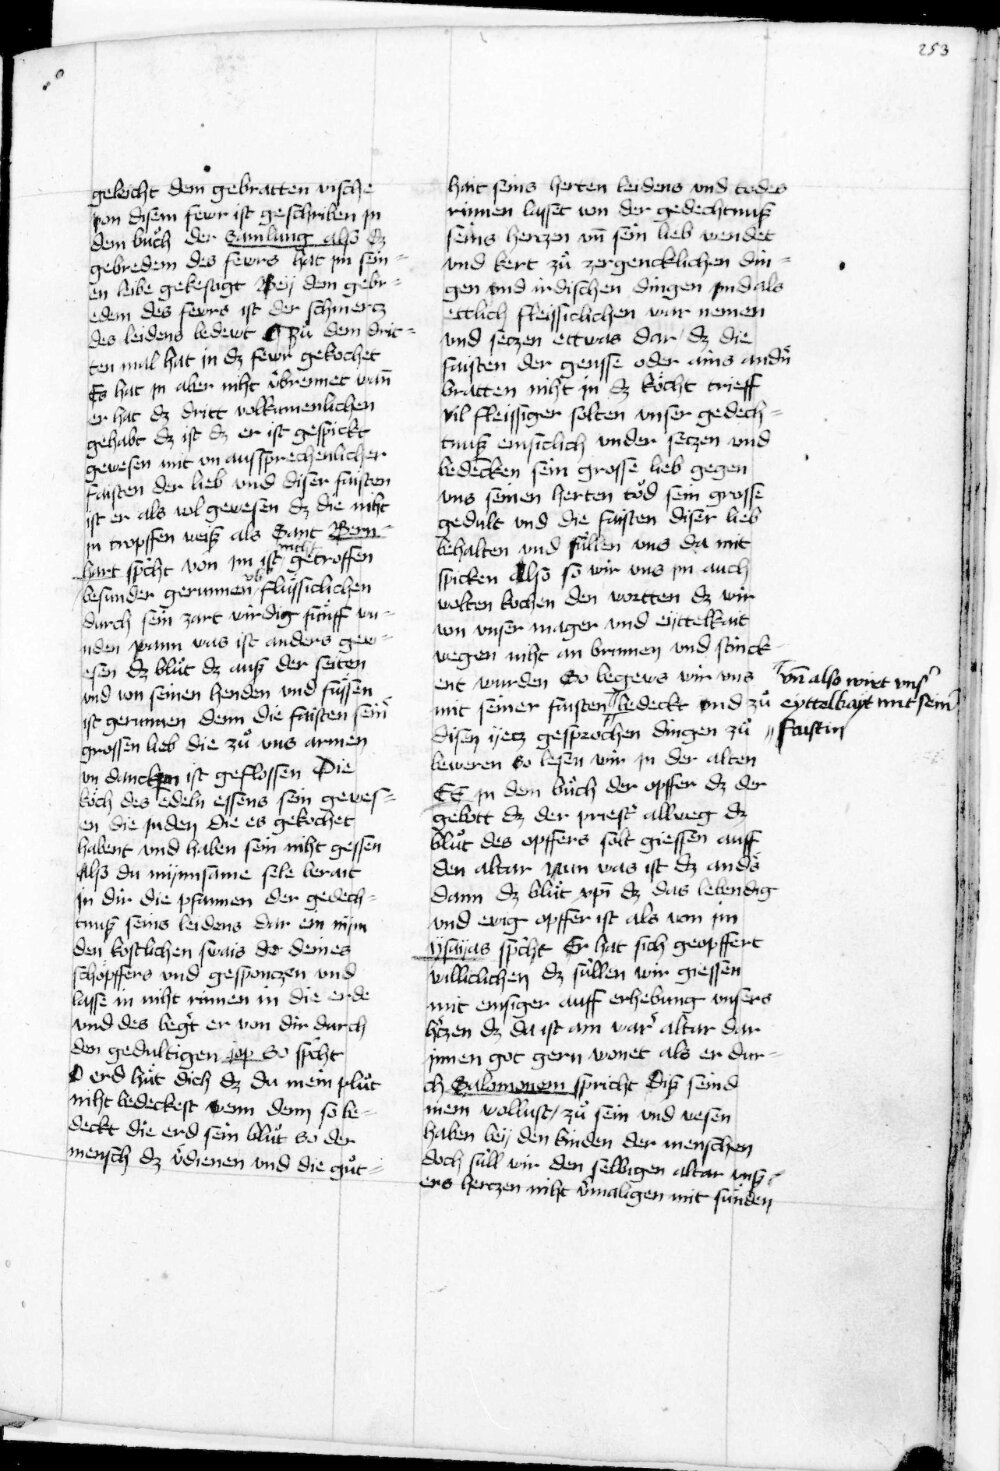 253
geleicht dem gebratten vische
von disem fewr ist geschriben in
dem bůch der Samlung also dz
gebredem des fewrs hat im sein-
en leibe gekesagt Beÿ dem gebr-
edem des fewrs ist der schmercz
des leidens bedewt Zů dem drit-
ten mal hat in dz fewr gekochet
Es hat in aber niht v̈brennet wan̄
er hat dz dritt volkumenlichen
gehabt dz ist dz er ist gespickt
gewesen mit vn aussprechenlicher
faisten der lieb vnd diser faisten
ist er als vol gewesen dz die niht
in tropffen weiß als Sant Bern-
hart sp̄cht von im ist nit getroffen
besunder gerunnen vb flüssiclichen
durch sein zart wirdig fünff wu-
nden wann was ist anders gew-
esen dz blůt dz auß der seiten
vnd von seinen henden vnd füssen
ist gerunnen denn die faisten sein̄
grossen lieb die zů vns armen
vn danckpn ist geflossen Die
köch des edeln essens sein gewes-
en die juden die es gekochet
habent vnd haben sein niht gessen
Also du mÿnnsame sele berait
in dir die pfannen der gedech-
tnuß seins leidens dar ein nÿm
den kostlichen swais do deines
schöpffers vnd gesponczen vnd
lasse in niht rinnen in die erde
vnd des beg̃t er von dir durch
den gedultigen iop So sp̄cht
O erd hüt dich dz du mein plůt
niht bedeckest wenn denn so be-
deckt die erd sein blůt so der
mensch dz v̈dienen vnd die gůt-
hait seins herten leidens vnd todes
rinnen lasset von der gedechtnuß
seins herczen vn̄ sein lieb wendet
vnd kert zů zergencklichen din-
gen vnd irdischen dingen vnd als
ettlich fleissiclichen war nemen
vnd seczen ettwas dar dz die
faisten der gensse oder ains and̄n
bratten niht in dz köcht trieff
vil fleissiger solten vnser gedech-
tnuß emsiclich vnder seczen vnd
bedecken sein grosse lieb gegen
vns seinen herten tod sein grosse
gedult vnd die faisten diser lieb
behalten vnd füllen vns da mit
spicken also so wir vns in auch
wolten kochen den wortten dz wir
von vnser mager vnd eÿttelkait
wegen niht an brunnen vnd stinck-
ent wurden So begews wir vns
mit seiner faisten bedeckt vnd zů
disen ÿecz gesprochen dingen zů
beweren so lesen wir in der alten
EE in dem bůch der opffer dz der
gebott dz der priest' allweg dz
blůt des opffers solt giessen auff
den altar wan was ist dz and's
dann dz blůt xp̄i dz das lebendig
vnd ewig opffer ist als von im
ÿsaÿas sp̄cht Er hat sich geopffert
williclichen dz süllen wir giessen
mit emsiger auff erhebung vnsers
h'czen dz da ist ain war' altar dar
innen got gern wonet als er dur-
ch Salomonem spricht Diß seind
mein wollust zů sein vnd wesen
haben beÿ den kinden der menschen
doch süll wir den selbigen altar vnß-
ers herczen niht v̈maligen mit sünden
vn̄ also wirt vns'
eÿttelkaÿt mit sein'
faistin